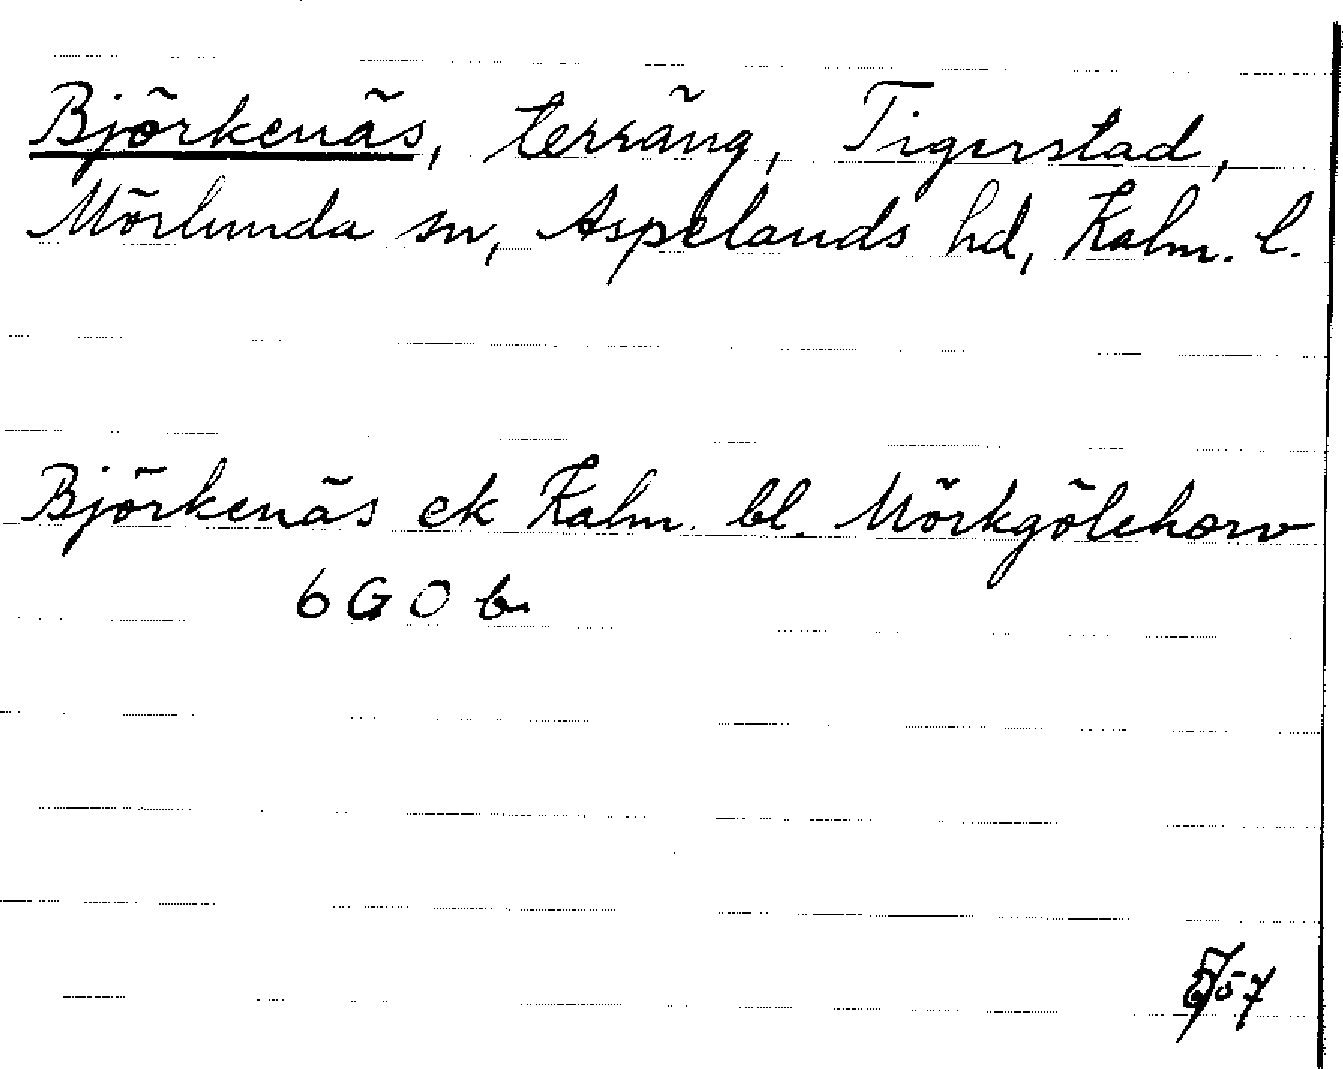 Björkenäs, terräng, Tigerstad,
Mörlunda sn, Aspelands hd, Kalm. l.
Björkenäs ek Kalm. bl. Mörkgölehorv
6 G 0 b